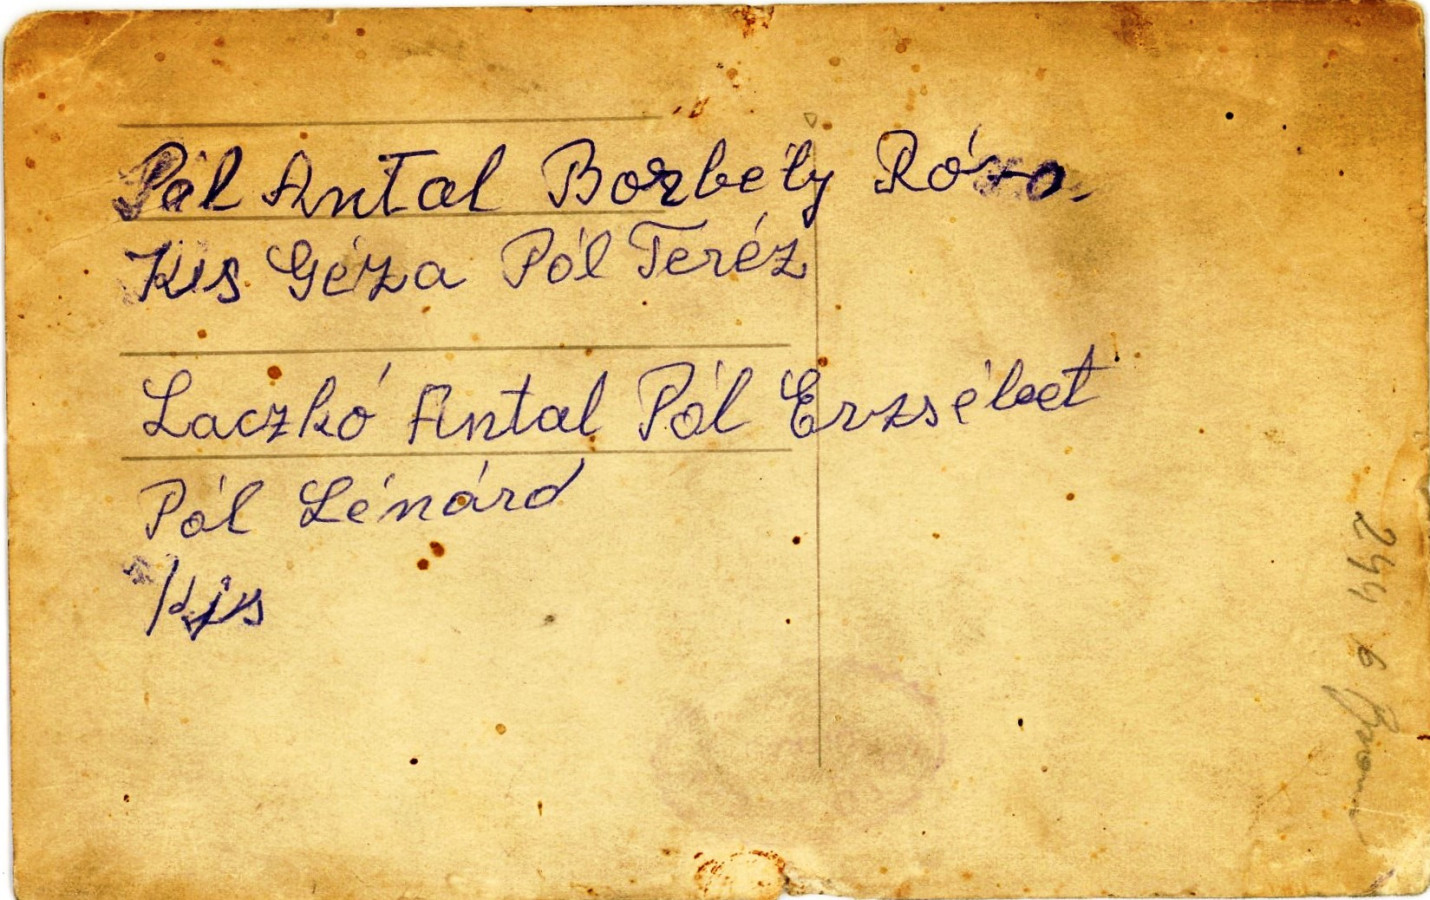 Pál Antal Borbély Róza
Kis Géza Pál Teréz
Laczkó Antal Pál Erzsébet
Pál Lénárd
Kis
244 6